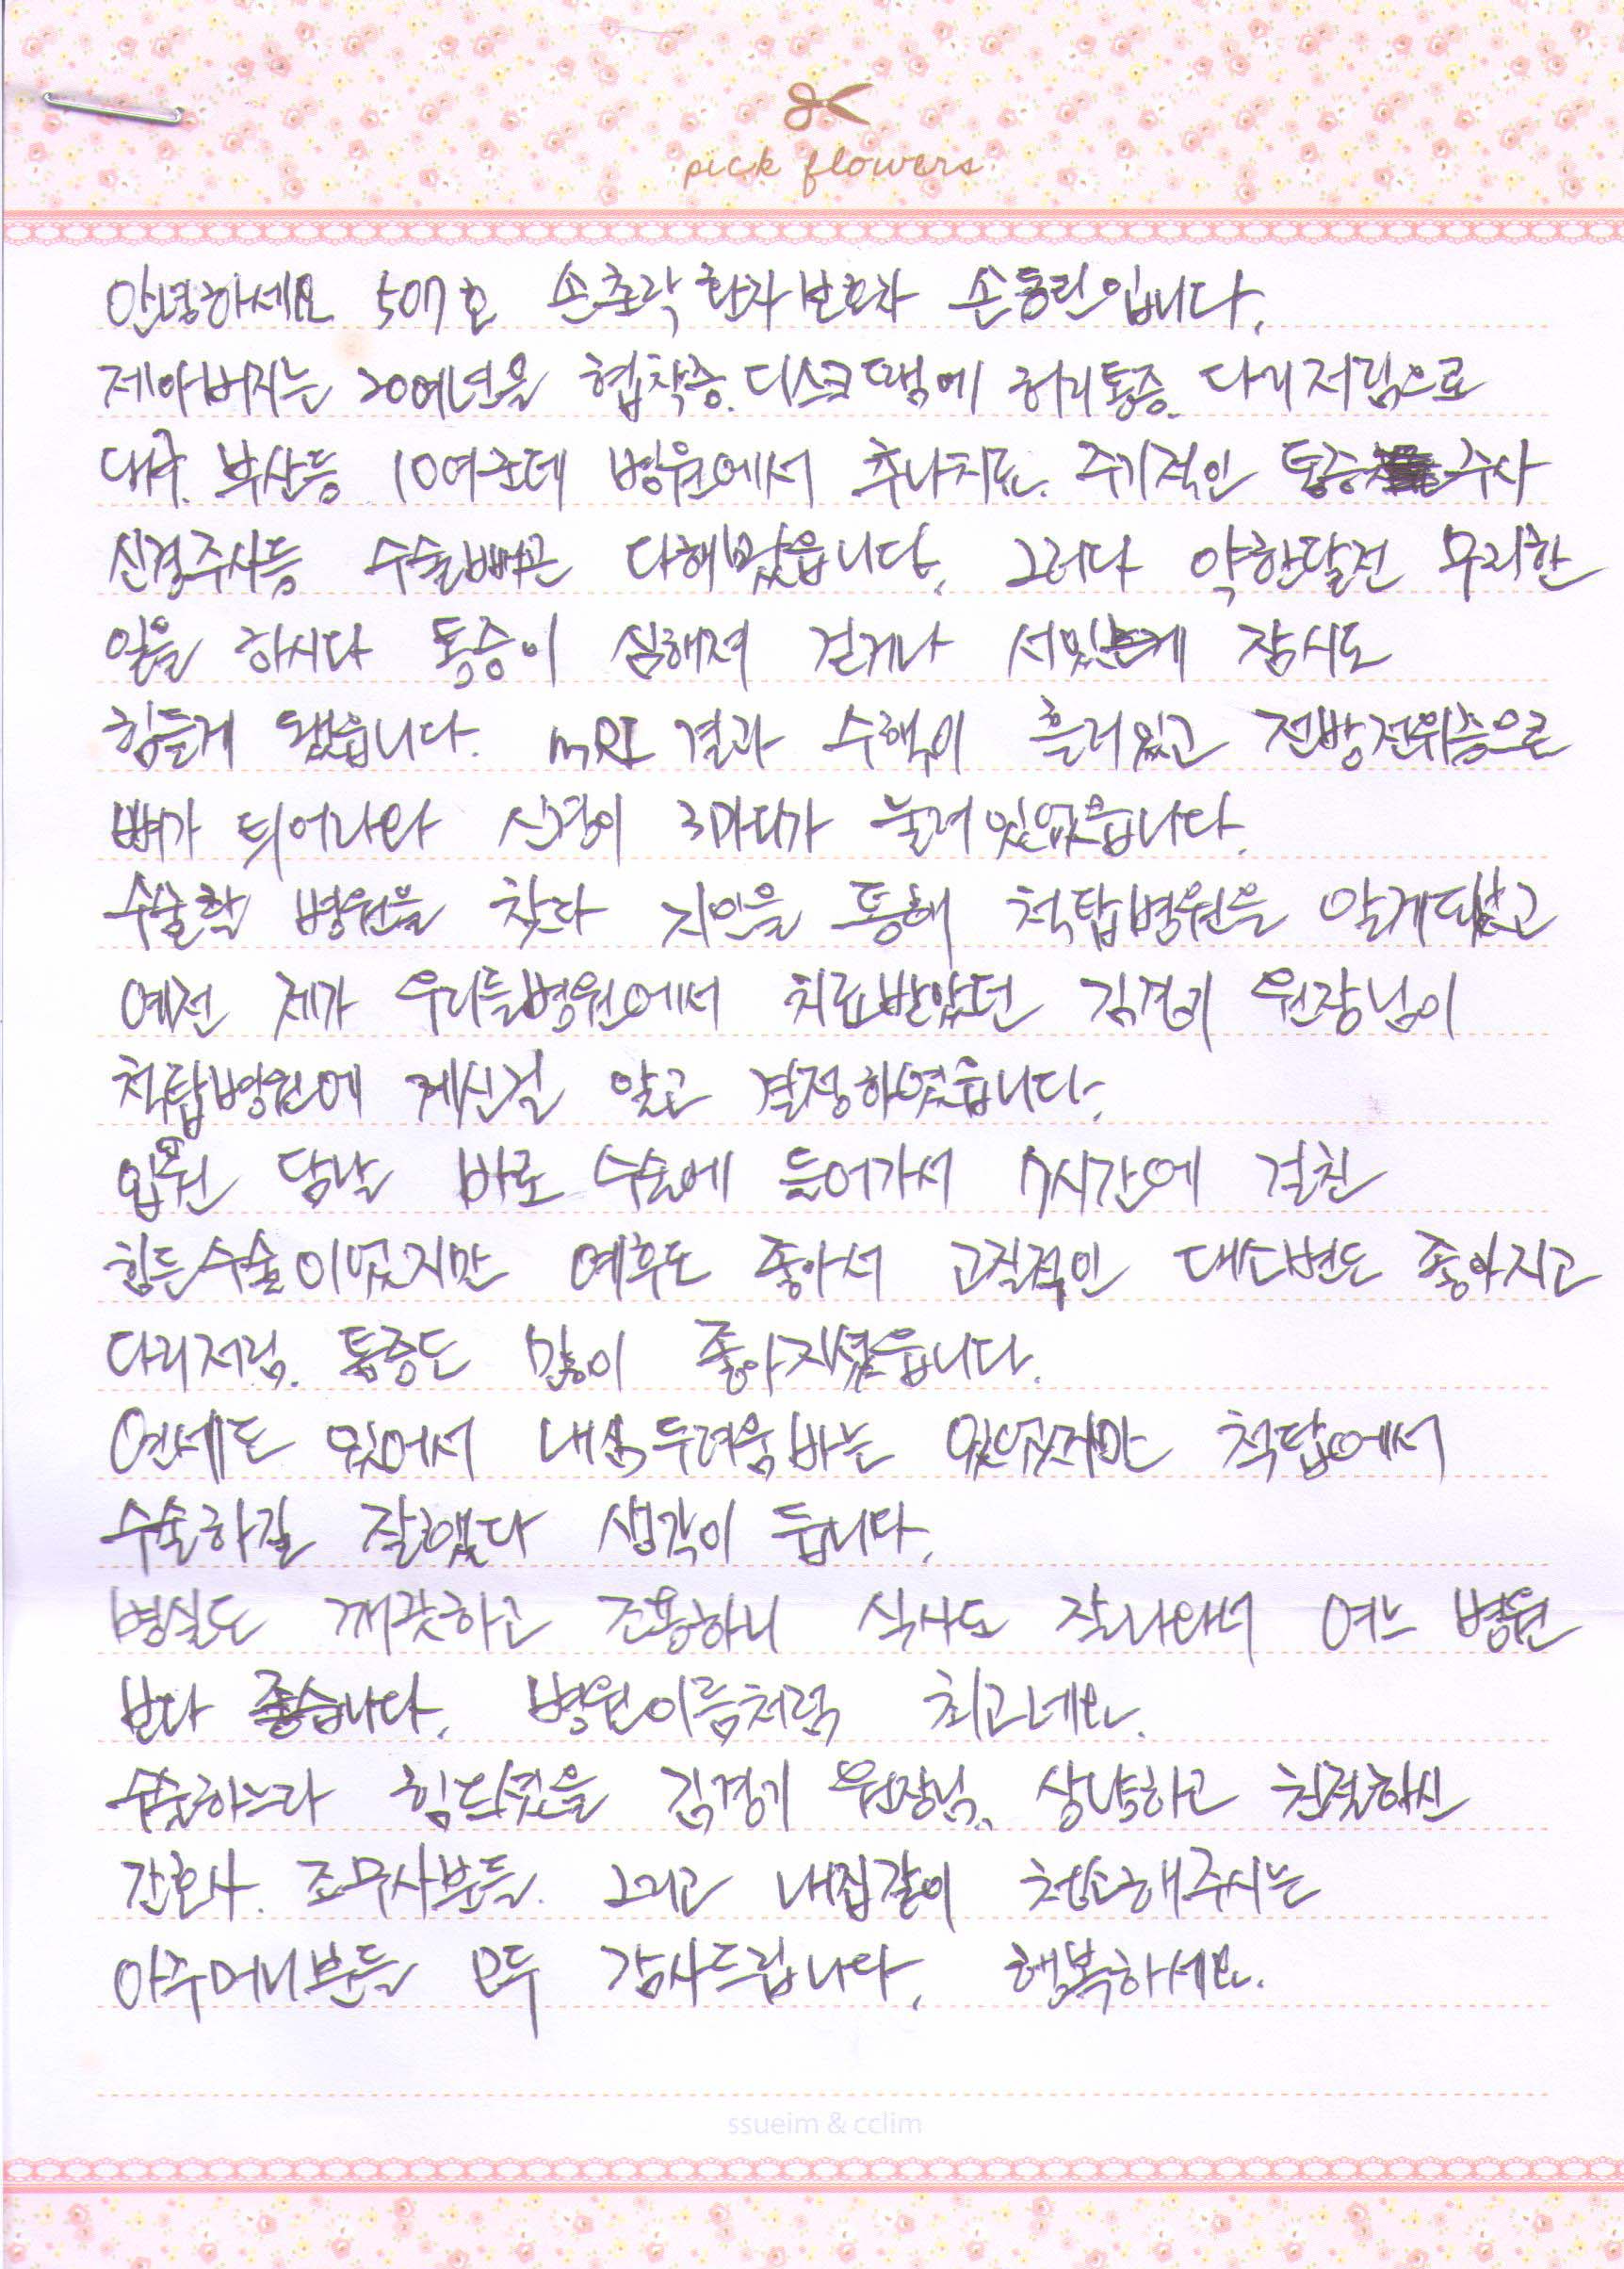 pick flowers
안녕하세요 507호 손초락 환자보호자 손동린입니다.
제아버지는 20여년을 협착증. 디스크땜에 허리통증. 다리저림으로
대구. 부산등 10여군데 병원에서 추나치료. 주기적인 통증주사
신경주사등 수술빼곤 다해봤읍니다. 그러다 약한달전 무리한
일을 하시다 통증이 심해져 걷거나 서있는게 잠시도
힘들게 됐읍니다. MRI 결과 수핵이 흘러있고 전방전위증으로
뼈가 튀어나와 신경이 3가닥가 눌려있었읍니다.
수술할 병원을 찾다 지인을 통해 척탑병원을 알게되었고
예전 제가 우리들병원에서 치료받았던 김경기 원장님이
척탑병원에 계신걸 알고 결정하였읍니다.
입원 담날 바로 수술에 들어가서 7시간에 걸친
힘든수술이었지만 예후도 좋아서 고질적인 대소변도 좋아지고
다리저림. 통증도 많이 좋아지셨읍니다.
연세도 있어서 내심두려움반는 있었지만 척탑에서
수술하길 잘했다 생각이 듭니다.
병실도 깨끗하고 조용하니 식사도 잘나와서 여느 병원
보다 좋습니다. 병원이름처럼 최고네요.
수술하느라 힘드셨을 김경기 원장님. 상냥하고 친절하신
간호사. 조무사분들. 그리고 내집같이 청소해주시는
아주머니분들 모두 감사드립니다. 행복하세요.
ssueim & cclim